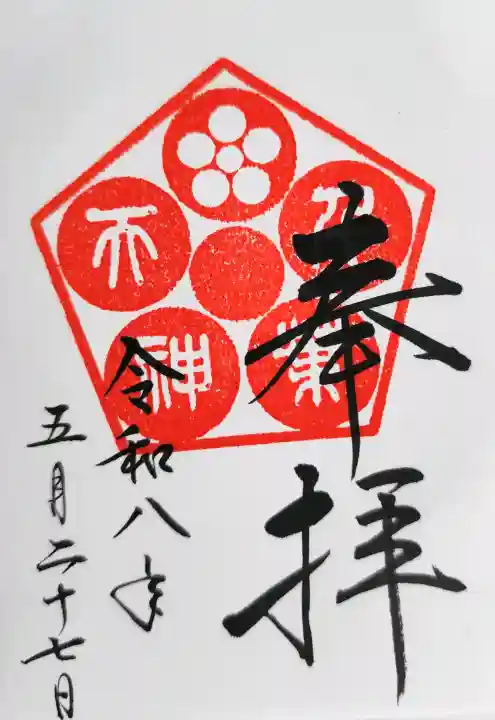 奉拝
千葉天神
令和八年
五月二十七日